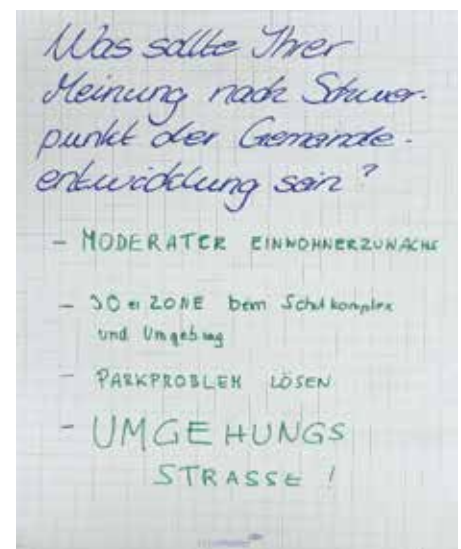 Was sollte Ihrer
Meinung nach Schwer-
punkt der Gemeinde-
entwicklung sein?
- MODERATER EINWOHNERZUWACHS
- 30er ZONE beim Schulkomplex
und Umgebung
- PARKPROBLEM LÖSEN
- UMGEHUNGS
STRASSE!